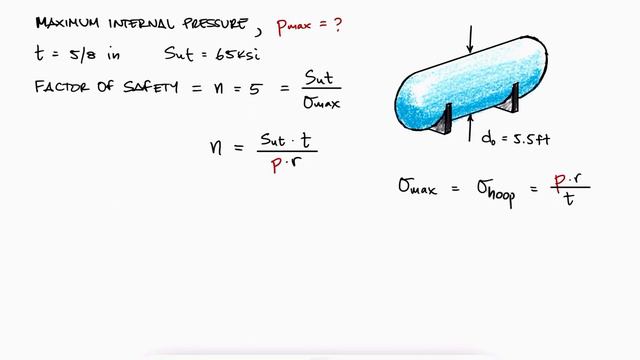 MAXIMUM INTERNAL PRESSURE, pmax = ?
t = 5/8 in Sut = 65ksi
FACTOR OF SAFETY = n = 5 = Sut / σmax
n = Sut · t / p · r
do = 5.5ft
σmax = σhoop = p · r / t